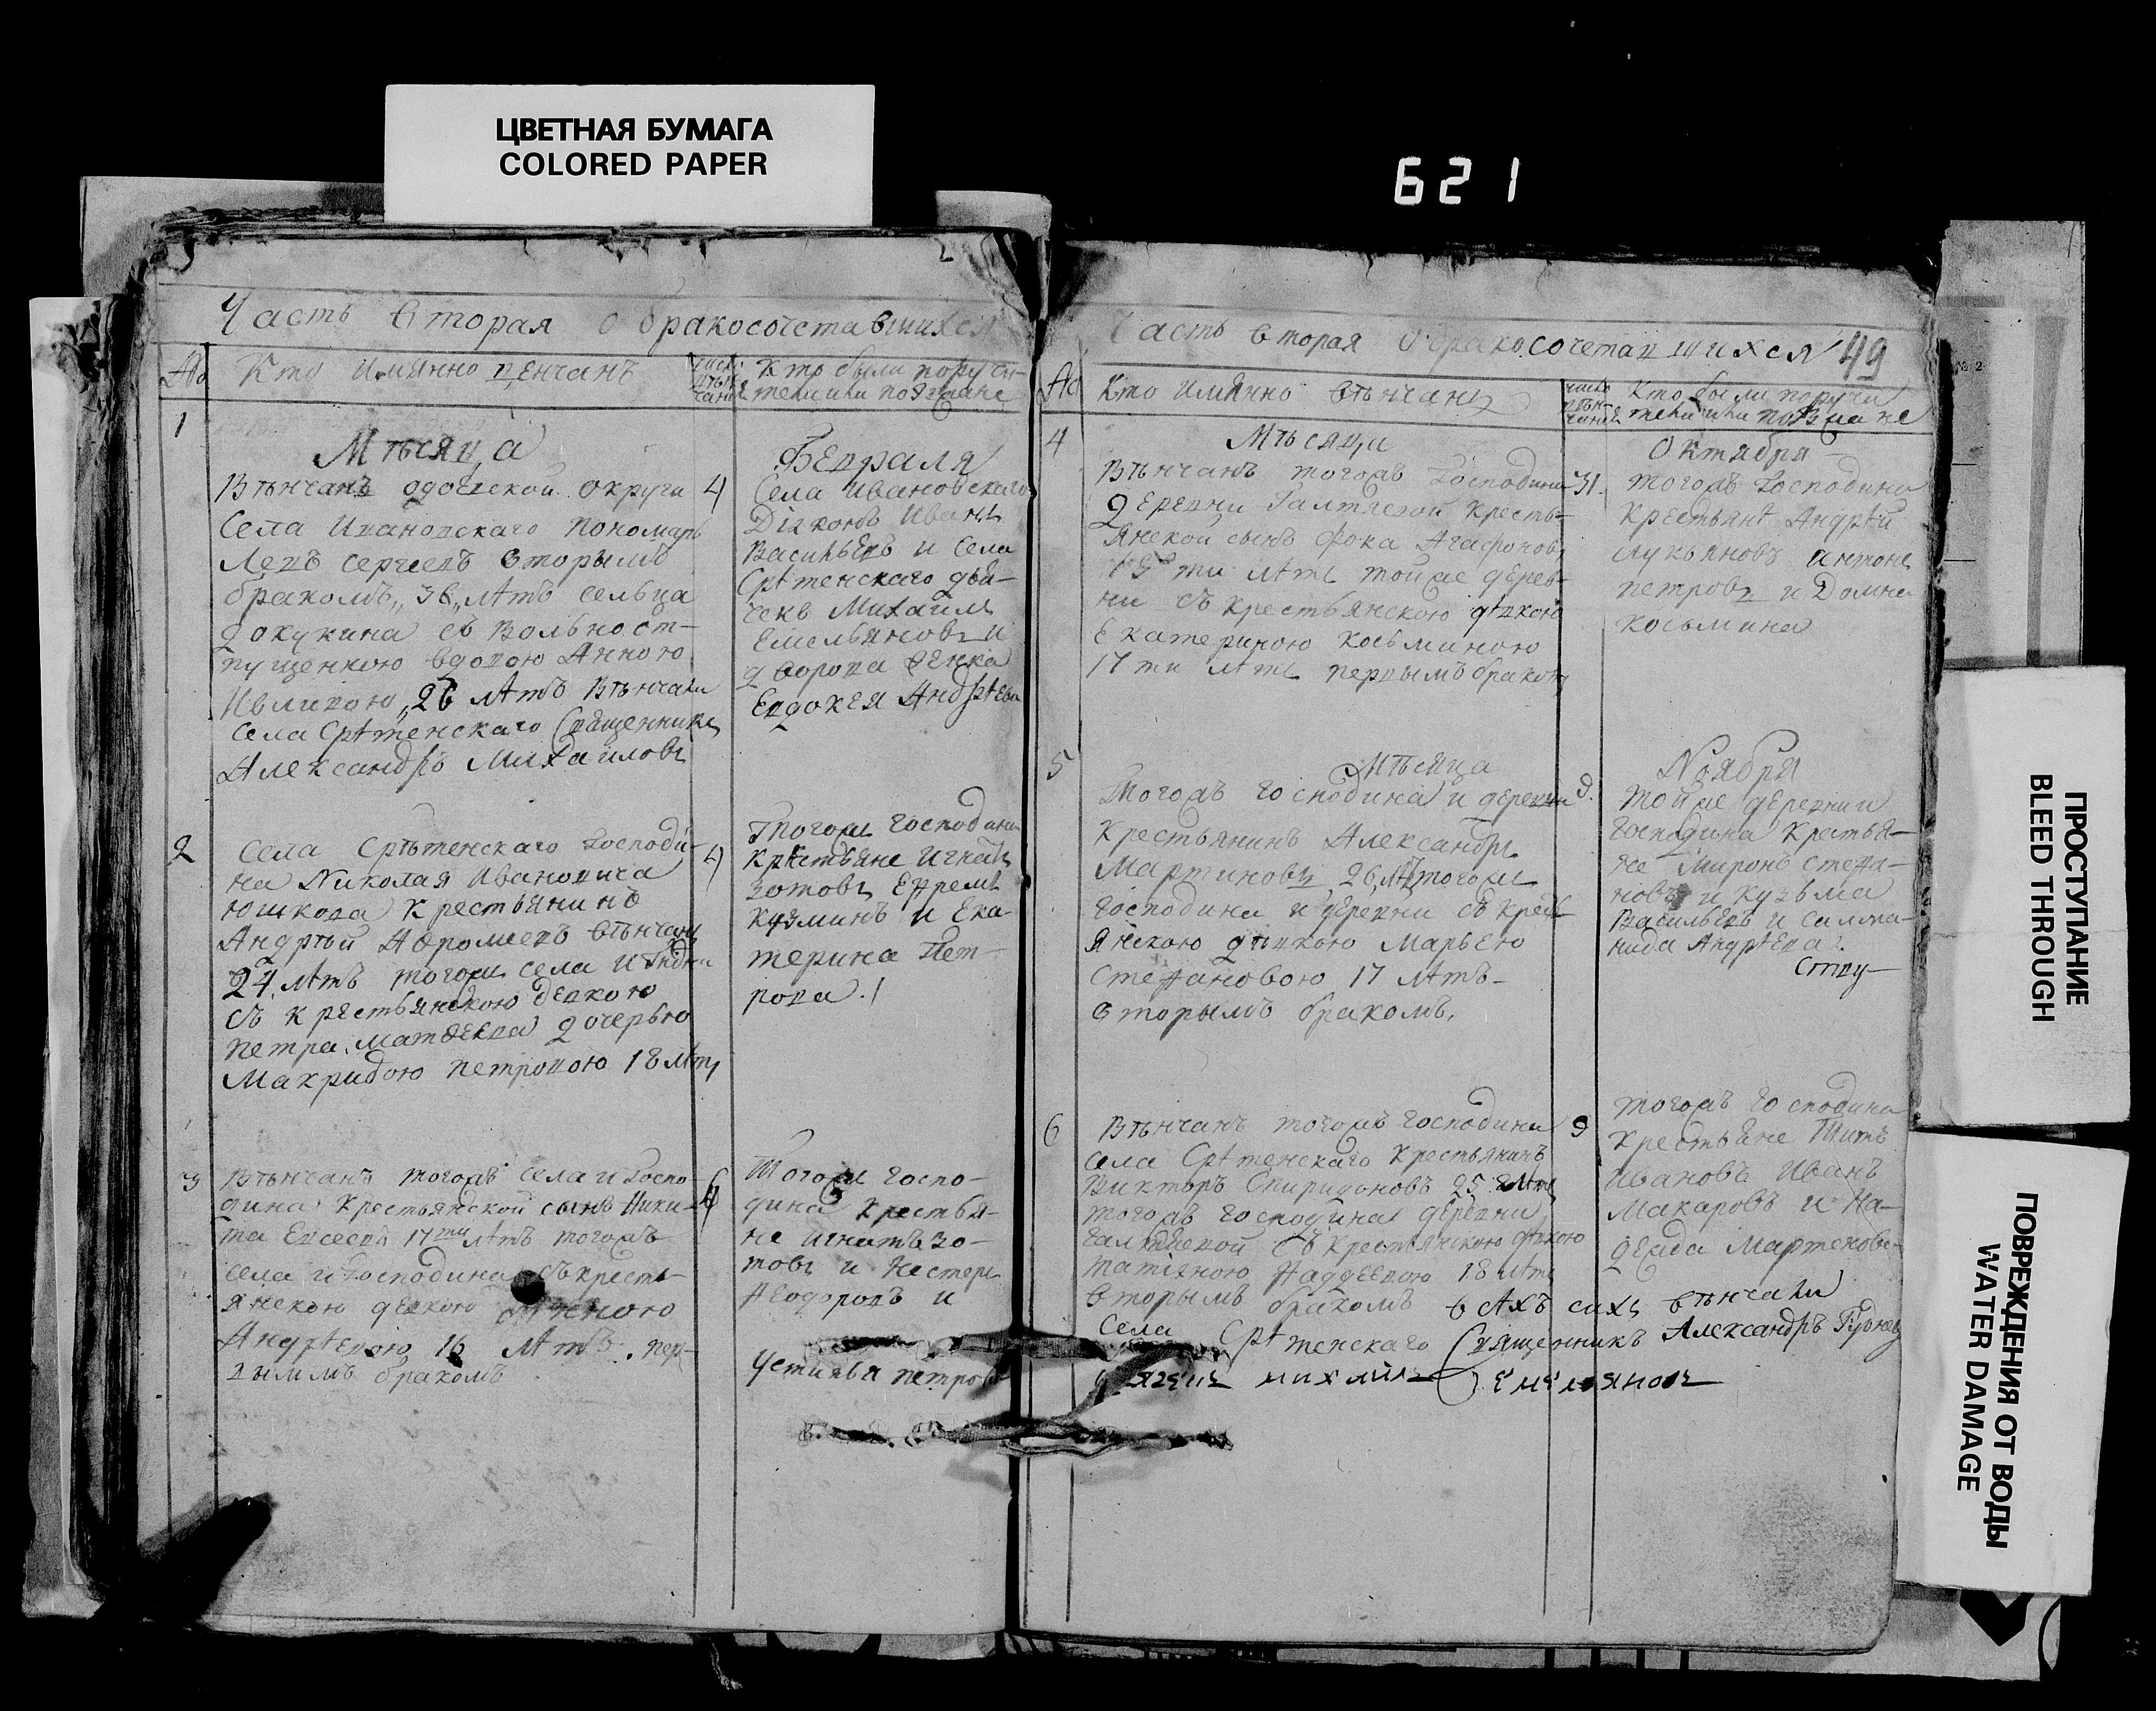 ЦВЕТНАЯ БУМАГА
COLORED PAPER
621
Часть вторая о бракосочетавшихся
№
Кто имянно венчанъ
число венчания
Кто были поручи-
тели или поезжане
1
Мѣсяца
Февраля
Вѣнчанъ одоевской округи
Села Ивановскаго Пономарь
Левъ сергеевъ вторымъ
бракомъ,, 36,, лѣтъ сельца
докукина съ вольноот-
пущенною вдовою Анною
26 лѣтъ Вѣнчали
Села Срѣтенскаго Священникъ
Александръ Михайловъ
4
Села Ивановскаго
Діаконъ Иванъ
Васильевъ и Села
Срѣтенскаго дья-
чекъ Михаилъ
Емельяновъ и
дворова женка
Евдокея Андрѣева
2
Села Срѣтенскаго Господи-
на Николая Ивановича
Юшкова Крестьянинъ
Андрѣй вѣнчанъ
24. лѣтъ тогожъ села и Гдна
съ крестьянскою девкою
Петра Матвеева дочерью
Макридою петровою 18 лѣтъ
4
Тогожъ господина
Крѣстьяне Игнатъ
Зотовъ Ефремъ
Кузминъ и Ека-
терина Пет-
рова.
3
Вѣнчанъ тогожъ села и Госпо-
дина Крестьянской сынъ Ники-
та Евсеевъ 17ти лѣтъ тогожъ
села и Господина съ кресть-
янскою девкою
Андрѣевою 16 лѣтъ пер-
вымъ бракомъ
Тогожъ госпо-
дина крестья-
не игнатъ зо-
товъ и нестеръ
Ѳеодоровъ и
Устинья петрова
Часть вторая о бракосочетавшихся
49
№
Кто имянно вѣнчанъ
число вѣн-
чания
Кто были поручи
тели или поезжане
4
Мѣсяца
Октября
Вѣнчанъ тогожъ Господина
деревни Галтяевой Кресть-
янской сынъ Фока Агафоновъ
ти лѣтъ тойже дерев-
ни съ крестьянскою дѣвкою
Екатериною Косьминою
17 ти лѣтъ первымъ бракомъ
31.
тогожъ Господина
крестьянѣ Андрѣй
лукьяновъ антонъ
петровъ и Домна
Косьмина
5
мѣсяца
Ноября
Тогожъ господина и деревни
Крестьянинъ Александръ
Мартиновъ 26 лѣтъ тогожъ
Господина и деревни съ крестъ
янскою дѣвкою Марьею
Стефановою 17 лѣтъ
вторымъ бракомъ.
9.
Тойже деревни и
господина крестья-
не Миронъ Стефа-
новъ и кузьма
Васильевъ и
Андрѣева.
6
Вѣнчанъ тогожъ господина
села Срѣтенскаго Крестьянинъ
Викторъ Спиридоновъ 25 лѣтъ
тогожъ господина деревни
Галтяевой съ крестьянскою дѣвкою
татіяною Фаддеевою 18 лѣтъ
вторымъ бракомъ всѣхъ сихъ вѣнчали
Села
Срѣтенскаго Священникъ Александръ
михаилъ Емельяновъ
9
Тогожъ господина
крестьяне Титъ
Ивановъ Иванъ
Макаровъ и На-
дежда Мартенова
ПРОСТУПАНИЕ
BLEED THROUGH
ПОВРЕЖДЕНИЯ ОТ ВОДЫ
WATER DAMAGE